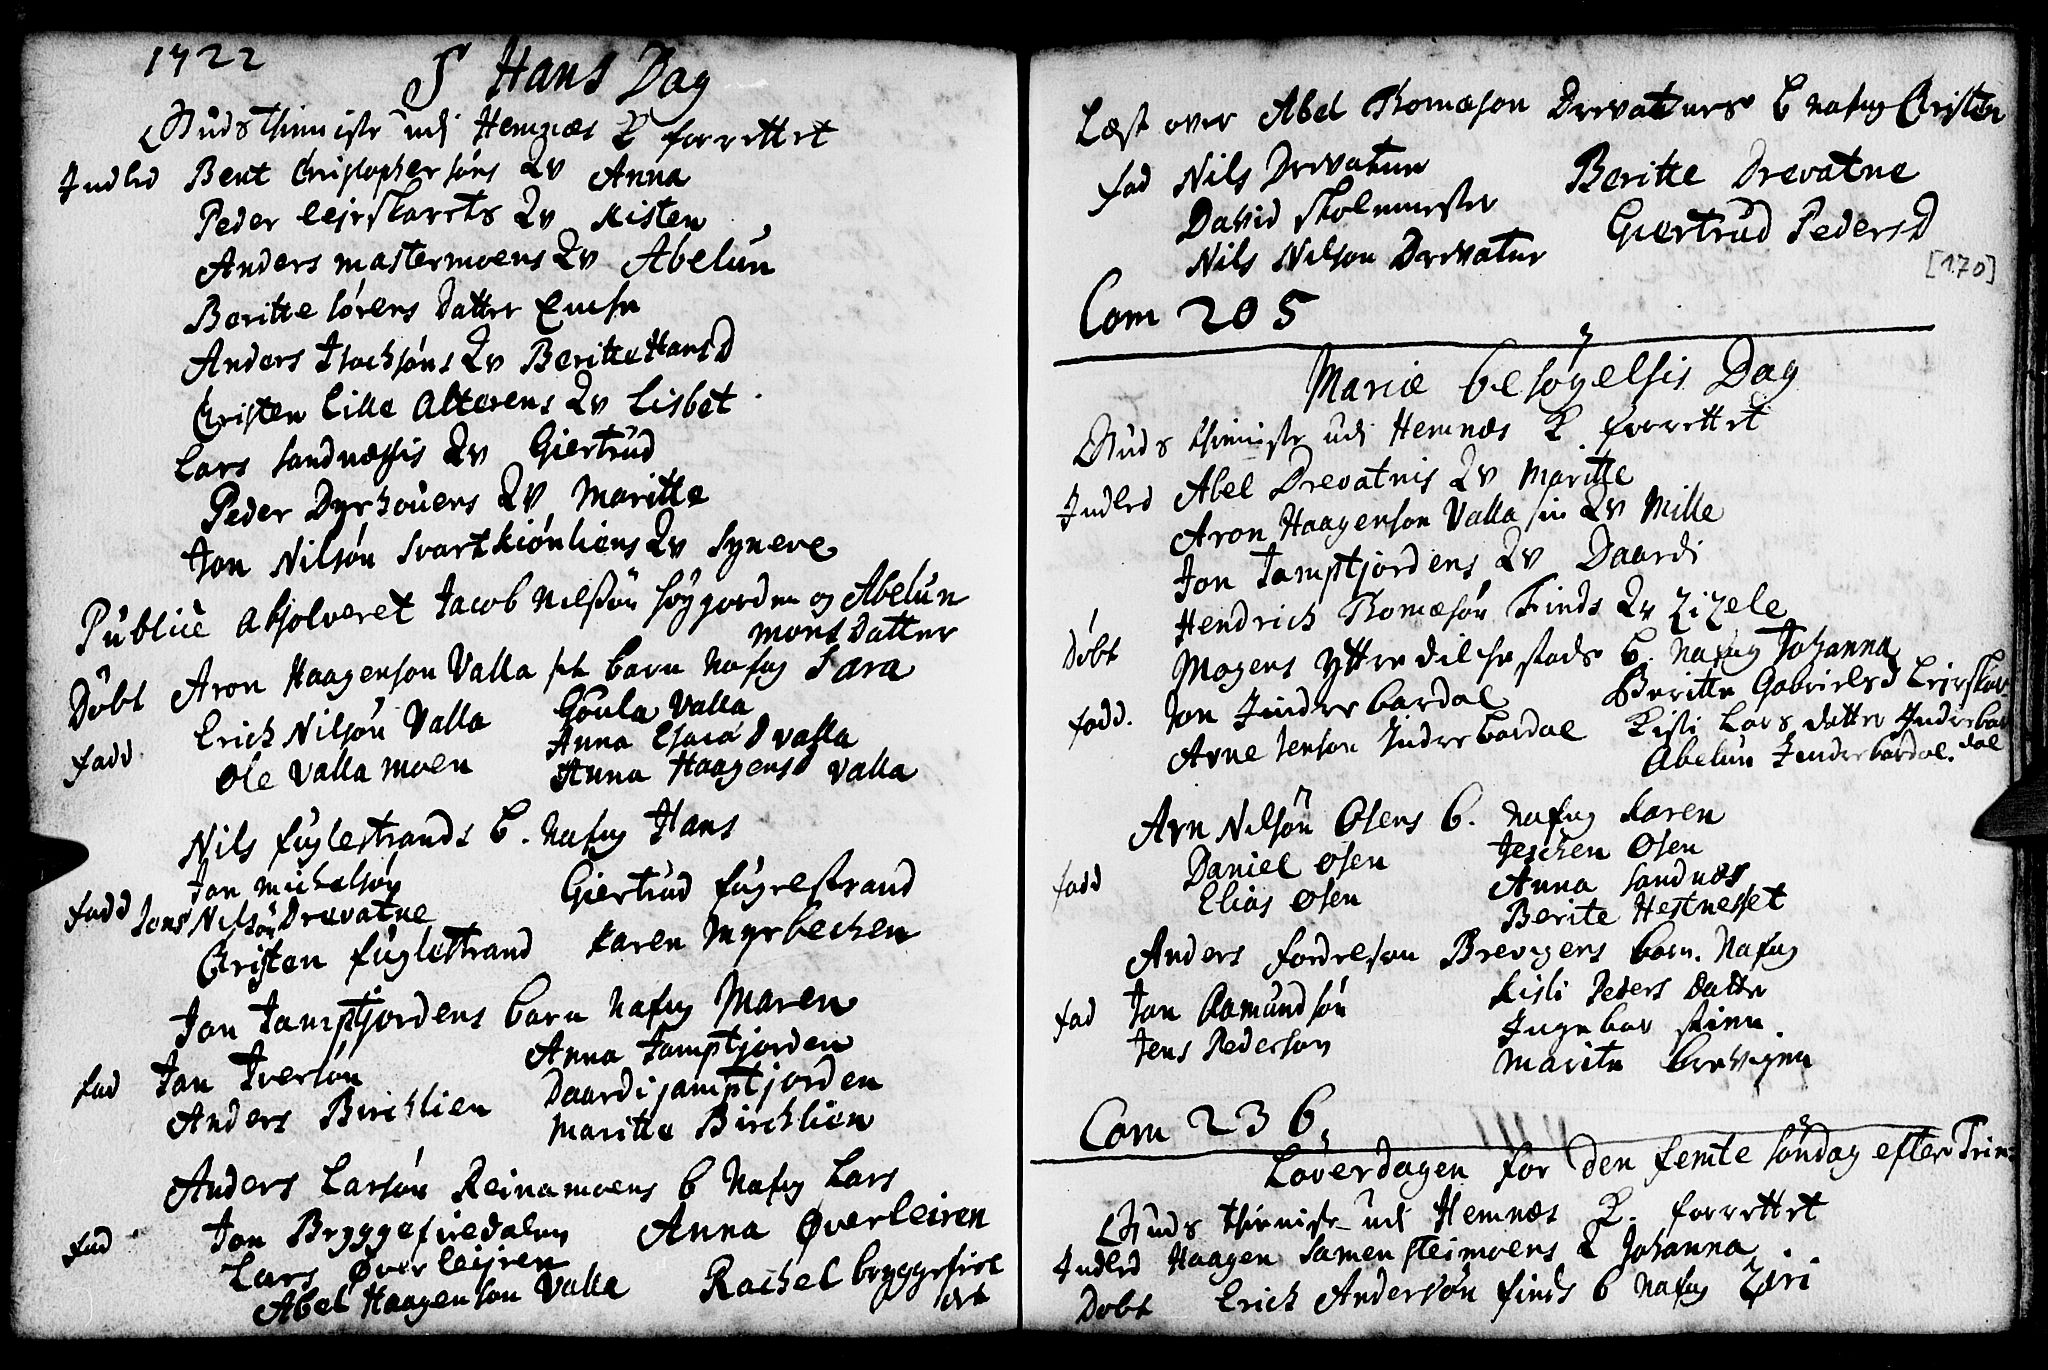 1722
S Hans Dag
Guds thieniste udi Hemnæs K forrettet
Indled Bent Christophersøns Qv Anna
Peder leirskarets Qv Kisten
Anders mastermoens Qv Abelun
Beritte sørens datter
Anders Isachsøns Qv Beritte HansD
Christen lille Alterens Qv Lisbet
Lars sandnæssis Qv Giertrud
Peder Dyrhouers Qv Maritte
Jon Nilsøn svartkiønliens Qv Syneve
Publice absolveret Jacob Nilssøn høygorden og Abelun
monsdatter
Døbt Aron Haagenson Valla barn nafng Sara
Erich Nilsøn Valla Goula Valla
fadd Anna D Valla
Ole Vallamoen Anna HaagensD Valla
Nils fuglestrands b. nafng Hans
Jon michelsøn Giertrud fuglestrand
fadd Jons Nilsøn Drevatne
Christen fuglestrand Karen Myrbechen
Jon Jamptjordens barn nafng Maren
fad Jon Iversøn Anna Jamptjorden
Anders Birchlien Daardi jamptjorden
Maritte Birchlien
Anders Larsøn Reinamoens b nafng Lars
fad Jon Bryggefiredalen Anna Øverleiren
Lars Øverleiren
Abel Haagenson Valla Rachel bryggefire
Læst over Abel Thomæson Drevatnes b nafng Christen
fad Nils Drevatne Beritte Drevatne
David skolemester Giertrud PedersD
Nils Nilson Drevatne
[170]
Com 205
Mariæ besøgelsis Dag
Guds thieniste udi Hemnæs K. forrettet
Indled Abel Drevatnis Qv Maritte
Aron Haagenson Valla sin Qv Mille
Jon Jamptjordens Qv Daardi
Hendrich Thomæsøn Finds Qv Zizele
Døbt Mogens Yttre dilkestads b. nafng Johanna
fadd. Jon Indre bardal Beritte GabrielsD Leirskar
Arne Jenson Indre bardal Kisti Lars datter Indre bar
dal
Abelun Indre bardal.
Arn Nilsøn Osens b. nafng Karen
fadd Daniel Osen Jeschen Osen
Elias Osen Anna sandnæs
Berite Hestnesset
Anders fordreson Brevigens barn nafng
fad Jon Aamundsøn Kisti Peders datter
Jens Pederson Ingebor
Marite brevigen
Com 236
Løverdagen for den femte søndag efter Trin:
Guds thieniste udi Hemnæs K. forrettet
Indled Haagen Samensteimoens Q Johanna
Døbt Erich Andersøn finds b nafng Zøri